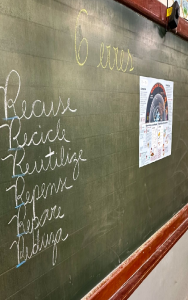 6 erres
Reuse
Recicle
Reutilize
Repense
Repare
Reduza